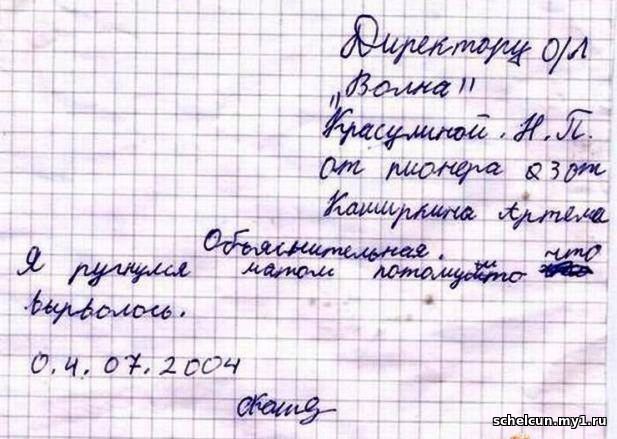 Директору о/л
„Волна"
Красулиной. Н. П.
от пионера 23 от
Каширкина Артема
Объяснительная.
Я ругнулся матом потому что что
вырволось.
0.4.07.2004
schelcun.my1.ru